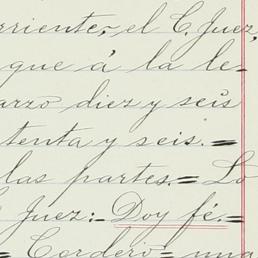 rriente, el C. Juez,
que á la le-
arzo diez y seis
tenta y seis.=
las partes.= Lo
Juez:- Doy fé.=
= Cordero= una